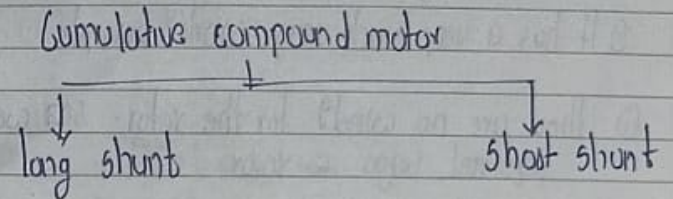 Cumulative compound motor
long shunt
short shunt